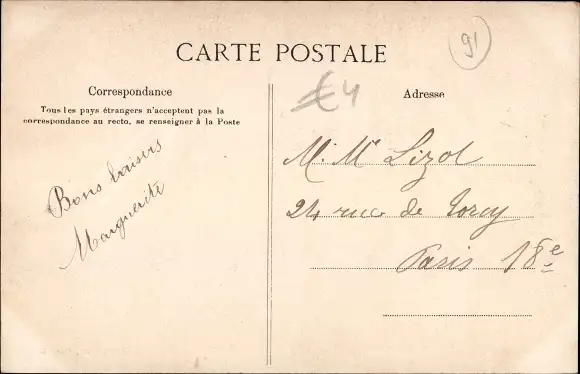 CARTE POSTALE
91
Correspondance
Tous les pays étrangers n'acceptent pas la
correspondance au recto, se renseigner à la Poste
Bons baisers
Marguerite
€4
Adresse
M. Me Lizol
24 rue de Torcy
Paris 18e